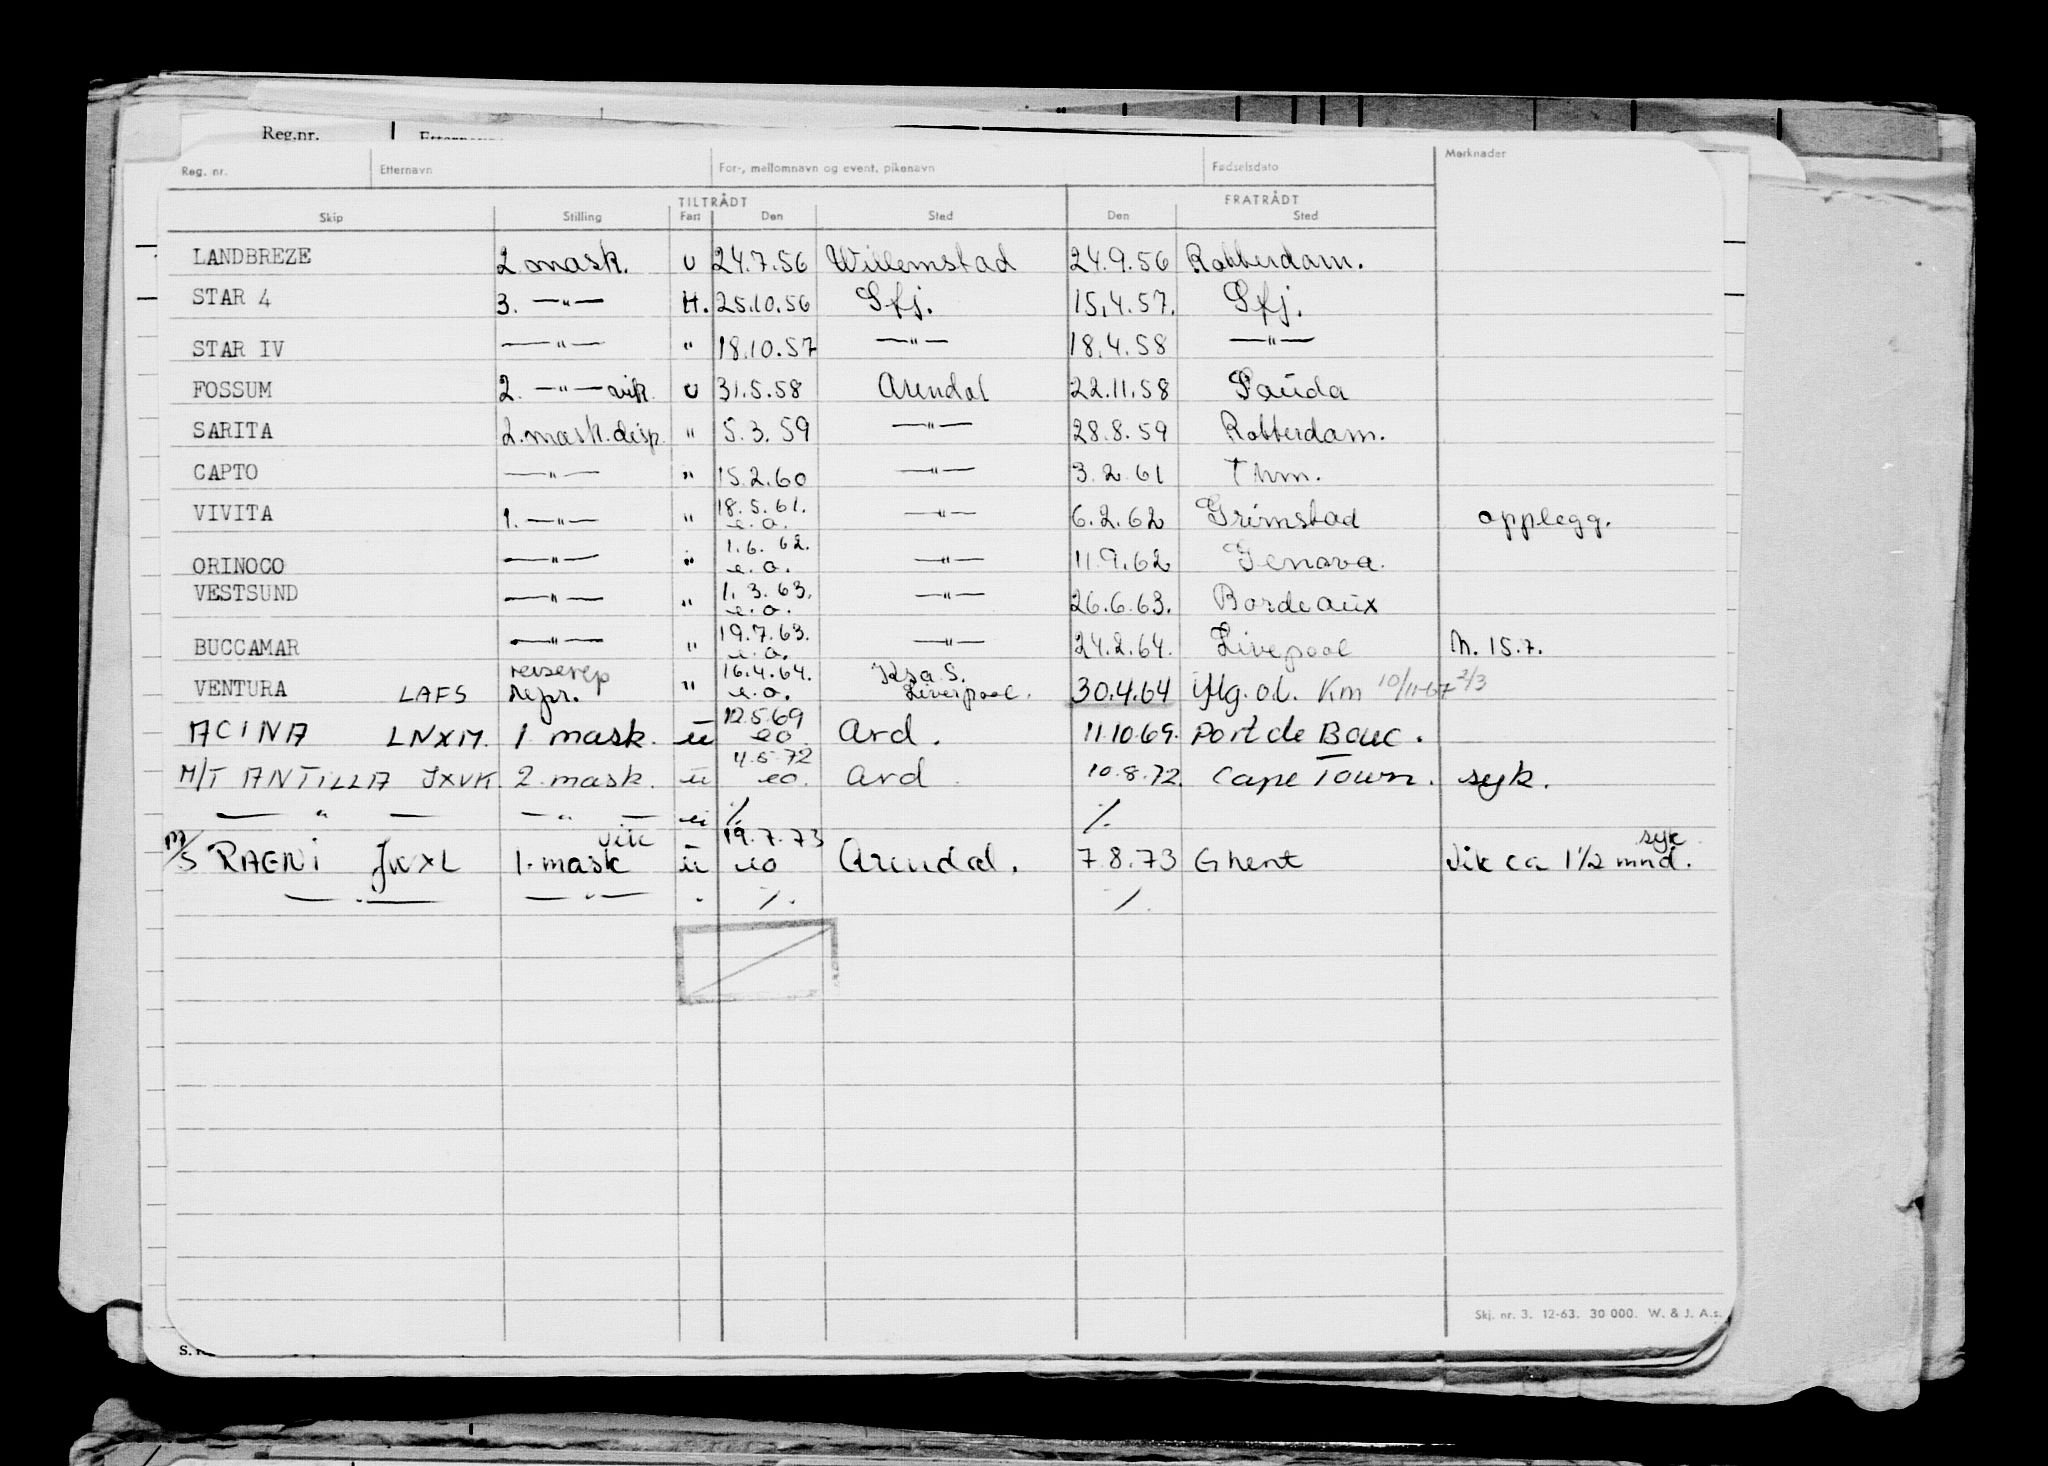 Reg.nr.
Reg. nr. Etternavn For-, mellomnavn og event. pikenavn Fødselsdato Merknader
TILTRÅDT FRATRÅDT
Skip Stilling Fart Den Sted Den Sted
LANDBREZE 2 mask. U 24.7.56 Willemstad 24.9.56 Rotterdam.
STAR 4 3. —"— H. 25.10.56 Sfj. 15.4.57. Sfj.
STAR IV —"— " 18.10.57 —"— 18.4.58 —"—
FOSSUM 2. —"— vik U 31.5.58 Arendal 22.11.58 Sauda
SARITA 2.mask.disp. " 5.3.59 —"— 28.8.59 Rotterdam.
CAPTO —"— " 15.2.60 —"— 3.2.61 Thm.
VIVITA 1. —"— " 18.5.61. e.o. —"— 6.2.62 Grimstad opplegg.
ORINOCO —"— " 1.6.62. e.o. —"— 11.9.62 Genova.
VESTSUND —"— " 1.3.63. e.o. —"— 26.6.63. Bordeaux
BUCCAMAR —"— " 19.7.63. e.o. —"— 24.2.64. Livepool M. 15.7.
VENTURA LAFS reiserep repr. " 16.4.64. e.o. Kra.S. Liverpool. 30.4.64 iflg. o.l. Km 10/11-67 2/3
ACINA LNXM. 1. mask. u 12.5.69 eo Ard. 11.10.69. Port de Bouc.
M/T ANTILLA JXVK. 2. mask. u 4.5.72 eo. Ard 10.8.72. Cape Town. syk.
— " — — " — u ⁒ ⁒
vik 19.7.73 syk
M/S RAGNI JWXL 1. mask u eo Arendal. 7.8.73 Ghent Vik ca 1½ mnd.
— " — — " — " ⁒ ⁒
Skj. nr. 3. 12-63. 30 000. W. & J. A.s.